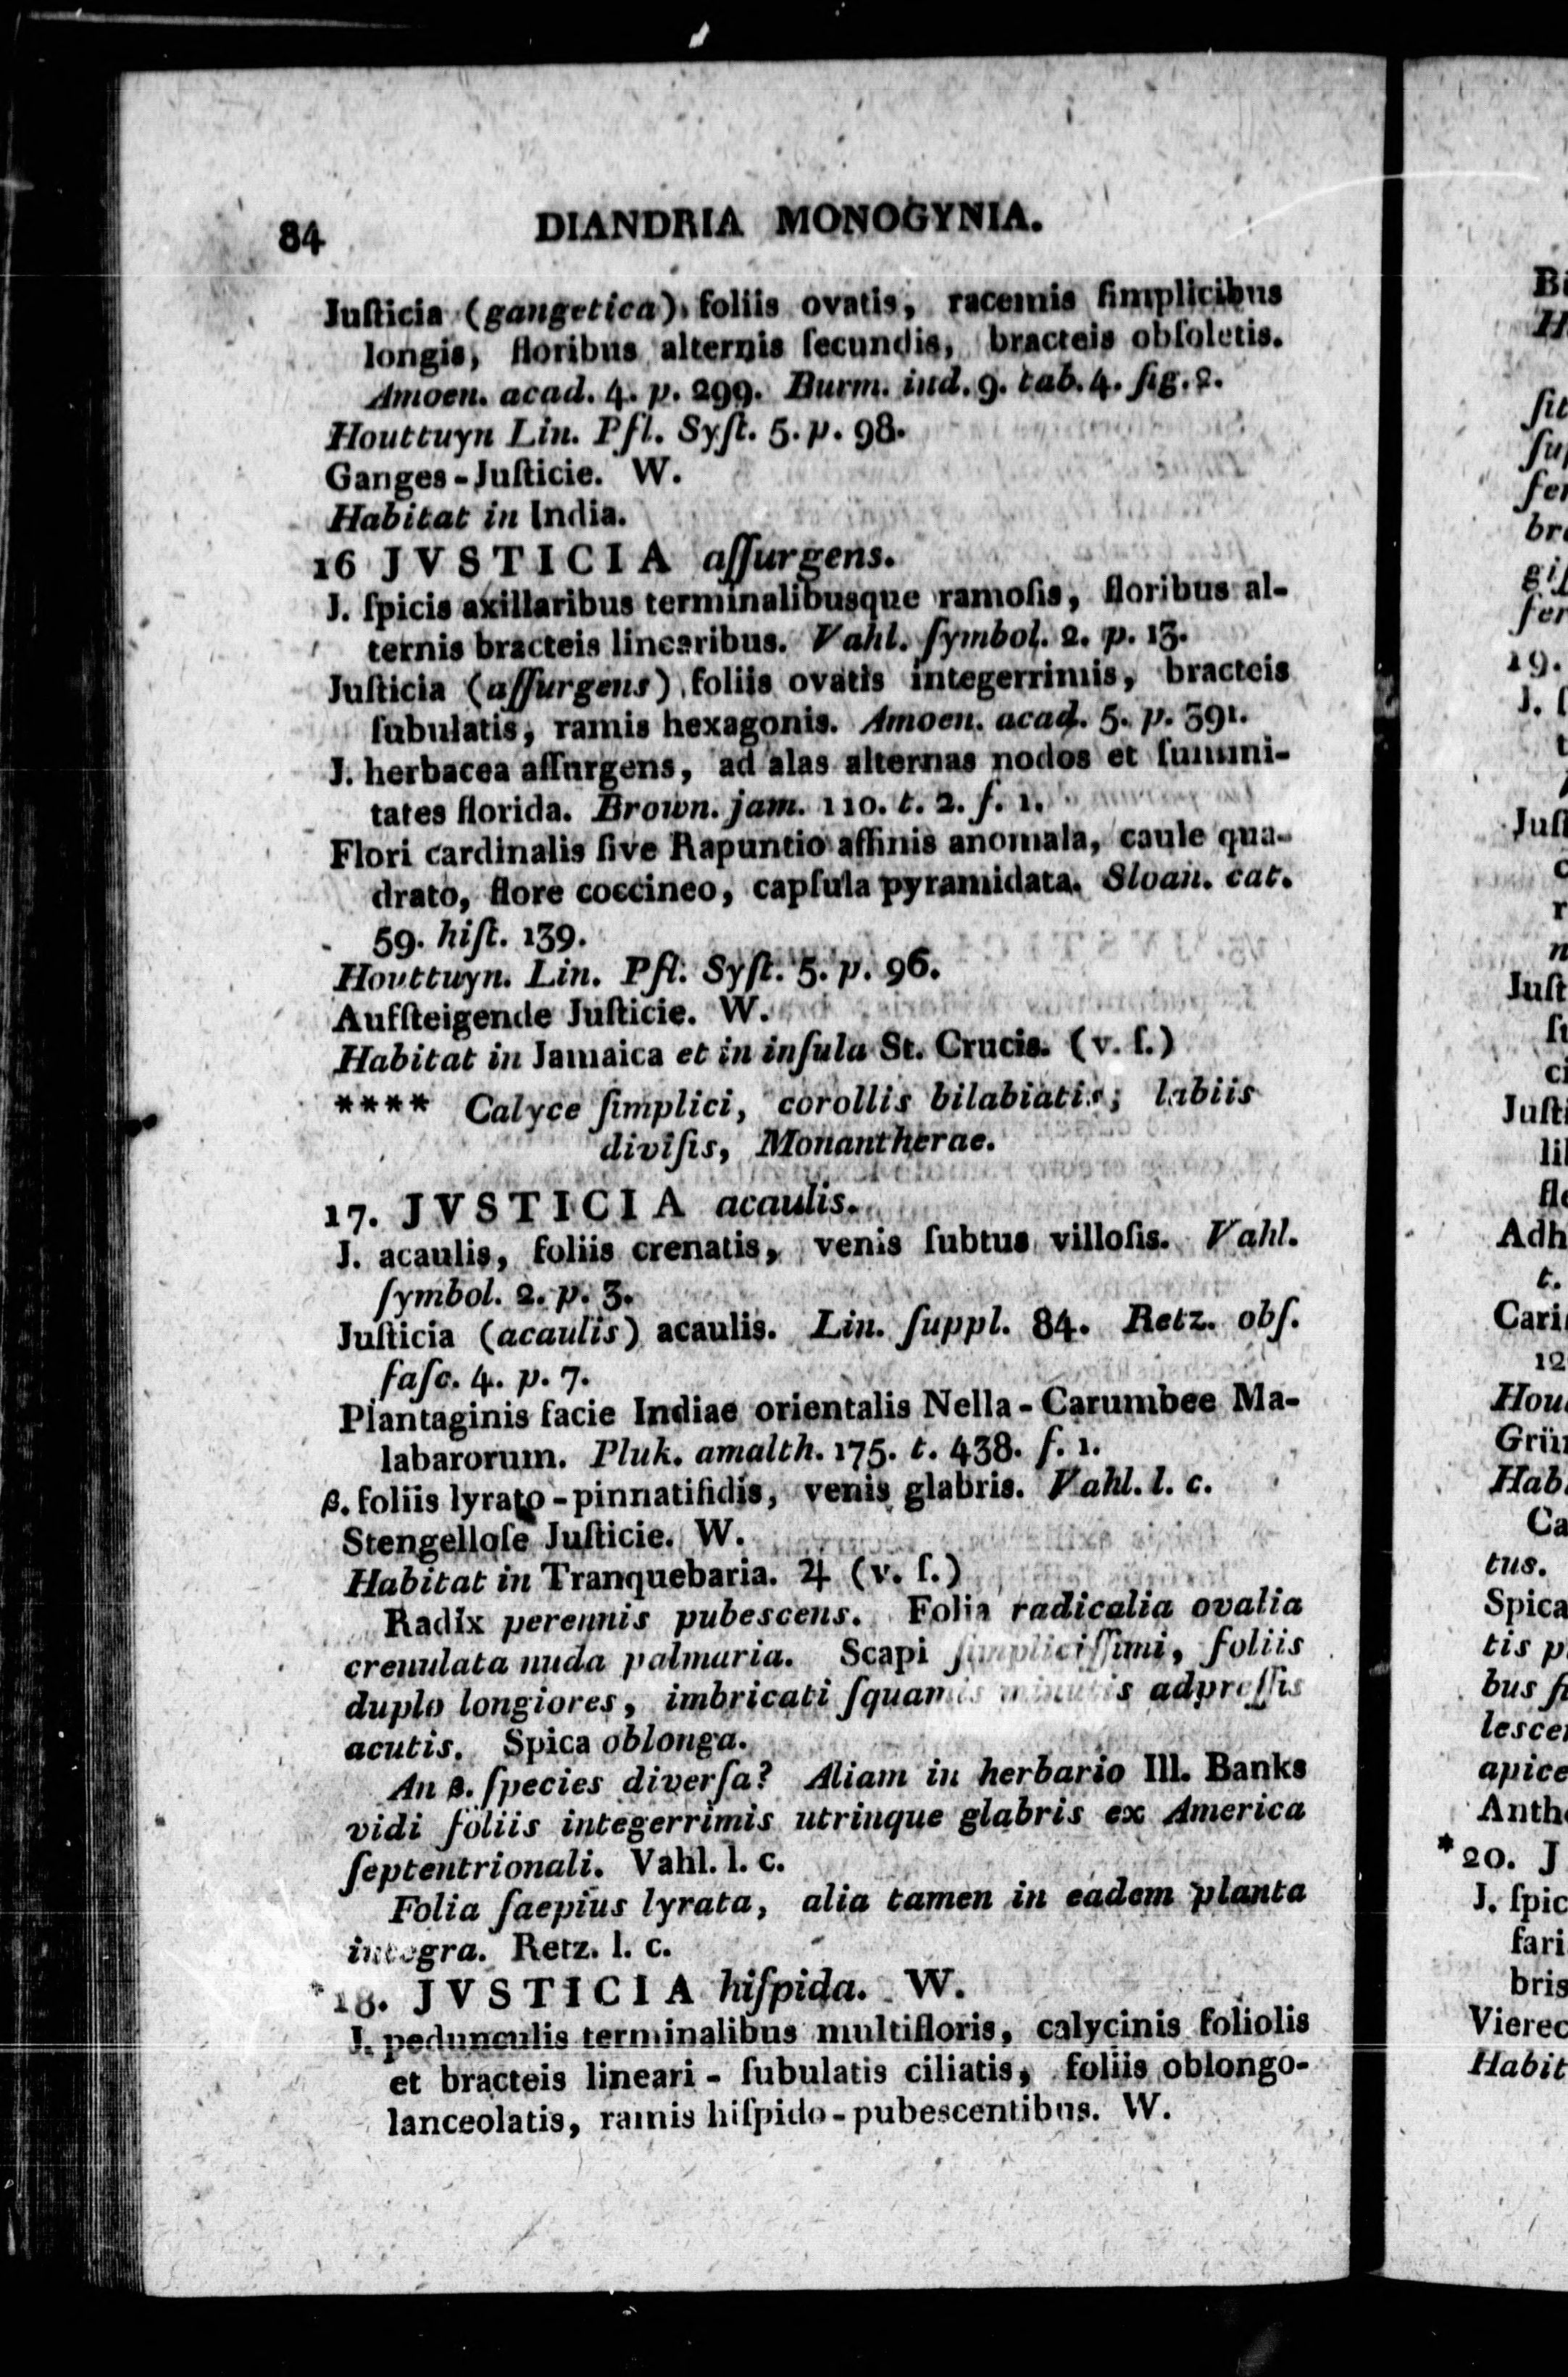 84 DIANDRIA MONOGYNIA.
Juſticia (gangetica) foliis ovatis, racemis ſimplicibus
longis, floribus alternis ſecundis, bracteis obſoletis.
Amoen. acad. 4. p. 299. Burm. ind. 9. tab. 4. fig. 2.
Houttuyn Lin. Pfl. Syſt. 5. p. 98.
Ganges-Juſticie. W.
Habitat in India.
16 JVSTICIA aſſurgens.
J. ſpicis axillaribus terminalibusque ramoſis, floribus al-
ternis bracteis linearibus. Vahl. ſymbol. 2. p. 13.
Juſticia (aſſurgens) foliis ovatis integerrimis, bracteis
ſubulatis, ramis hexagonis. Amoen. acad. 5. p. 391.
J. herbacea aſſurgens, ad alas alternas nodos et ſummi-
tates florida. Brown. jam. 110. t. 2. f. 1.
Flori cardinalis ſive Rapuntio affinis anomala, caule qua-
drato, flore coccineo, capſula pyramidata. Sloan. cat.
59. hiſt. 139.
Houttuyn. Lin. Pfl. Syſt. 5. p. 96.
Aufſteigende Juſticie. W.
Habitat in Jamaica et in inſula St. Crucis. (v. ſ.)
**** Calyce ſimplici, corollis bilabiatis; labiis
diviſis, Monantherae.
17. JVSTICIA acaulis.
J. acaulis, foliis crenatis, venis ſubtus villoſis. Vahl.
ſymbol. 2. p. 3.
Juſticia (acaulis) acaulis. Lin. ſuppl. 84. Retz. obſ.
faſc. 4. p. 7.
Plantaginis facie Indiae orientalis Nella-Carumbee Ma-
labarorum. Pluk. amalth. 175. t. 438. f. 1.
β. foliis lyrato-pinnatifidis, venis glabris. Vahl. l. c.
Stengelloſe Juſticie. W.
Habitat in Tranquebaria. ♃ (v. ſ.)
Radix perennis pubescens. Folia radicalia ovalia
crenulata nuda palmaria. Scapi ſimpliciſſimi, foliis
duplo longiores, imbricati ſquamis minutis adpreſſis
acutis. Spica oblonga.
An β. ſpecies diverſa? Aliam in herbario Ill. Banks
vidi foliis integerrimis utrinque glabris ex America
ſeptentrionali. Vahl. l. c.
Folia ſaepius lyrata, alia tamen in eadem planta
integra. Retz. l. c.
*18. JVSTICIA hiſpida. W.
J. pedunculis terminalibus multifloris, calycinis foliolis
et bracteis lineari-ſubulatis ciliatis, foliis oblongo-
lanceolatis, ramis hiſpido-pubescentibus. W.